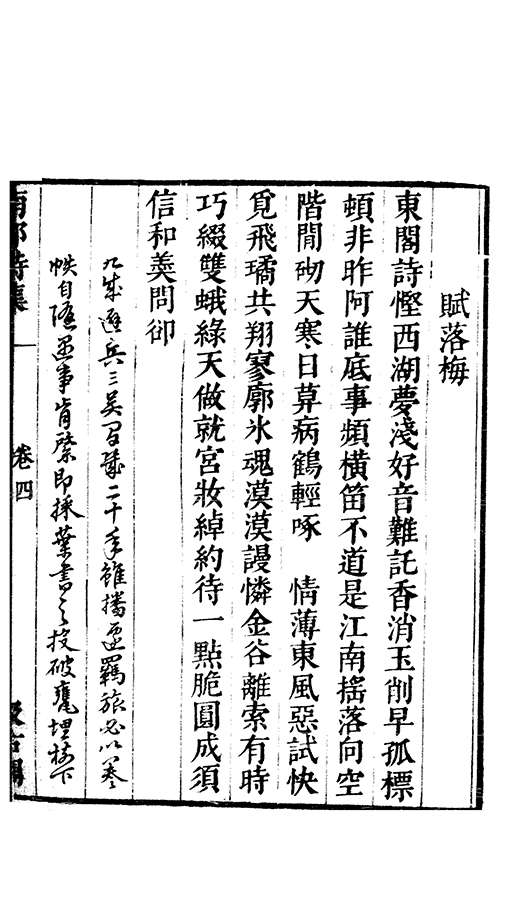 賦落梅
東閣詩慳西湖夢淺好音難託香消玉削早孤標
頓非昨阿誰底事頻橫笛不道是江南搖落向空
階閒砌天寒日暮病鶴輕啄　情薄東風惡試快
覓飛瓊共翔寥廓氷魂漠漠謾憐金谷離索有時
巧綴雙蛾綠天做就宮妝綽約待一點脆圓成須
信和羹問卻
九成避兵三吳二十年雖播遷羈旅必以
帙自隨遇事肯綮即採葉書之投破甕埋樹下
卷四